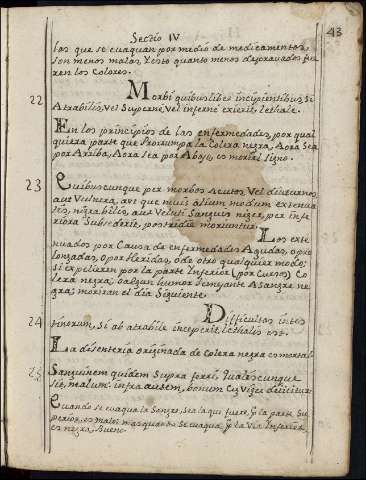 43
Sectio IV
las que se euaquan por medio de medicamentos,
son menos malos, y esto quanto menos deprauados fue
ren los Colores.
22 Morbi quibuslibet incipientibus, si
Atrabilis, vel superne, vel inferne exierit, lethale.
En los principios de las enfermedades, por qual
quiera parte que Prorrumpa la Colera negra, Aora sea
por Arriba, Aora sea por Abajo, es mortal signo.
23 Quibuscunque per morbos Acutos, vel diuturnos
aut Vulnera, aut que muis alium modum extenua
tis, nigra bilis, aut veluti sanguis niger, per infe
riora subsederit, postridie moriuntur.
Los exte
nuados por Causa de enfermedades Agudas, o pro
longadas, o por Heridas, o de otro qualquier modo;
si expelieren por la parte Inferior (por Cursos) Co
lera negra, o algun humor semejante A sangre ne
gra; moriran el dia Siguiente.
24 Difficultas intes
tinorum, si ab atrabile inceperit, lethalis est.
La disenteria originada de Colera negra es mortal
25 Sanguinem quidem supra ferri, qualescunque
sit, malum. infra autem, bonum
Quando se euaqua la Sangre, sea la qui fuere, p la parte Su
perior, es malo; mas quando se euaqua p la Via Inferior
es negra, Bueno